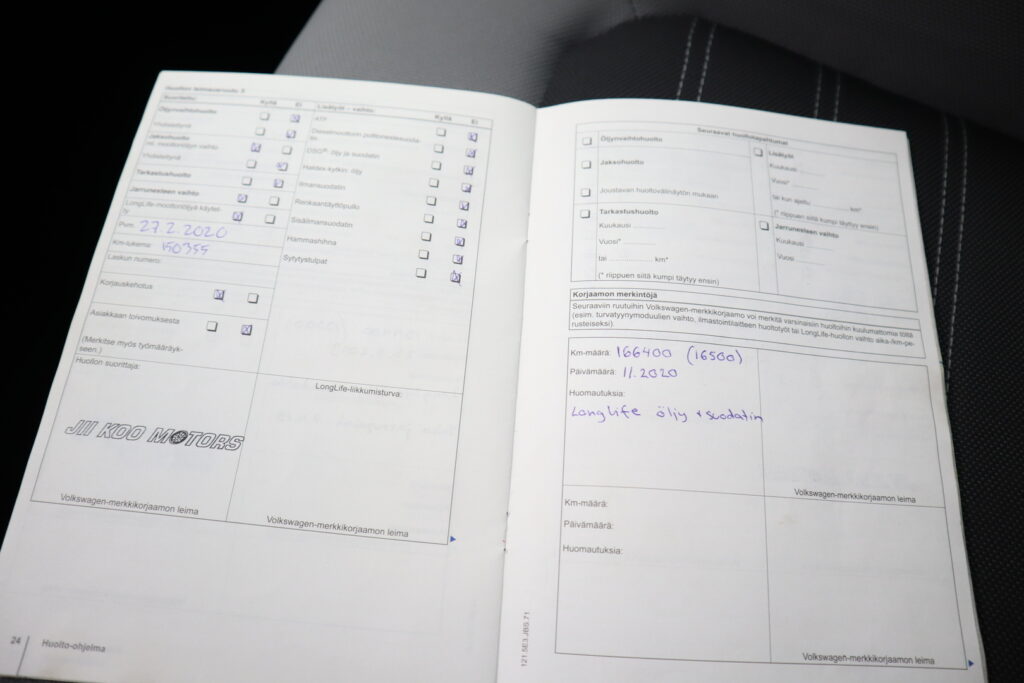 Suoritettu: Kyllä Ei
Öljynvaihtohuolto
Yhdistettynä
Jaksohuolto
ml. moottoriöljyn vaihto
Yhdistettynä
Tarkastushuolto
Jarrunesteen vaihto
LongLife-moottoriöljyä käytet-
ty
Pvm. 27.2.2020
Km-lukema: 150355
Laskun numero:
Korjauskehotus
Asiakkaan toivomuksesta
(Merkitse myös työmääräyk-
seen.)
Huollon suorittaja:
JII KOO MOTORS
Volkswagen-merkkikorjaamon leima
Lisätyöt - vaihto: Kyllä Ei
ATF
Dieselmoottorin polttoainesuoda-
tin
DSG®: öljy ja suodatin
Haldex-kytkin: öljy
Ilmansuodatin
Renkaantäyttöpullo
Sisäilmansuodatin
Hammashihna
Sytytystulpat
LongLife-liikkumisturva:
Volkswagen-merkkikorjaamon leima
24 Huolto-ohjelma
Seuraavat huoltotapahtumat
Öljynvaihtohuolto
Jaksohuolto
Joustavan huoltovälinäytön mukaan
Tarkastushuolto
Kuukausi ..........
Vuosi* ..........
tai .................... km*
(* riippuen siitä kumpi täytyy ensin)
Lisätyöt
Kuukausi ..........
Vuosi* ..........
tai kun ajettu .......... km*
(* riippuen siitä kumpi täytyy ensin)
Jarrunesteen vaihto
Kuukausi ..........
Vuosi ..........
Korjaamon merkintöjä
Seuraaviin ruutuihin Volkswagen-merkkikorjaamo voi merkitä varsinaisiin huoltoihin kuulumattomia töitä
(esim. turvatyynymoduulien vaihto, ilmastointilaitteen huoltotyöt tai LongLife-huollon vaihto aika-/km-pe-
rusteiseksi).
Km-määrä: 166400 (16500)
Päivämäärä: 11.2020
Huomautuksia:
LongLife öljy + suodatin
Volkswagen-merkkikorjaamon leima
Km-määrä:
Päivämäärä:
Huomautuksia:
Volkswagen-merkkikorjaamon leima
121.5E3.JBS.71